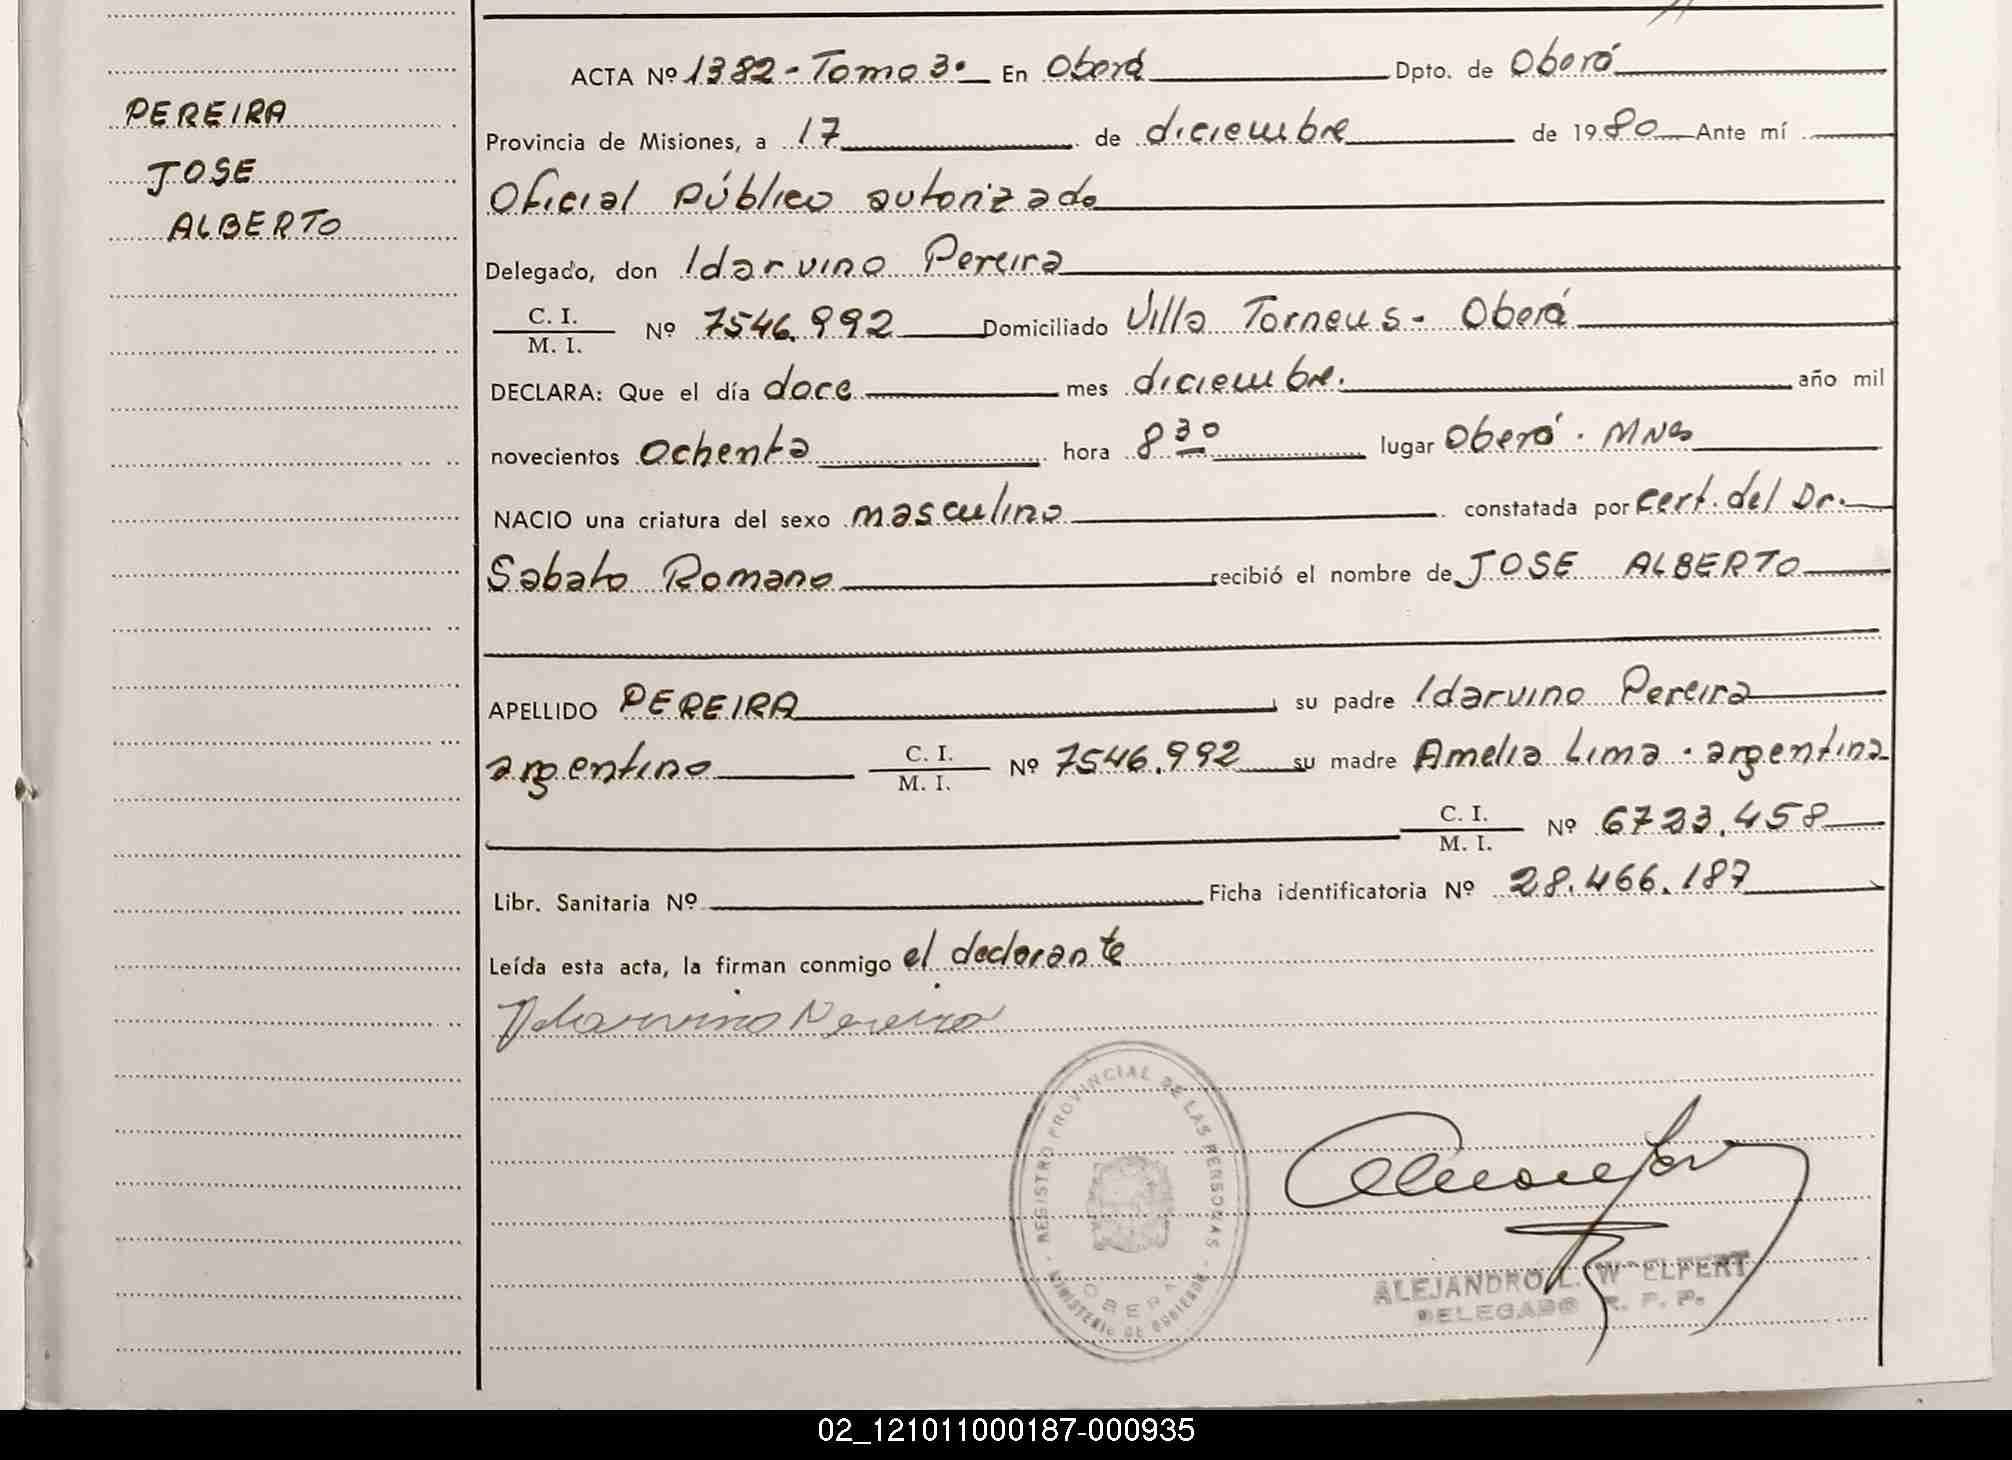 PEREIRA
JOSE
ALBERTO
ACTA Nº 1382 - Tomo 3º En Oberá Dpto. de Oberá
Provincia de Misiones, a 17 de diciembre de 1980 Ante mí
Oficial Público autorizado
Delegado, don Idarvino Pereira
C. I.
M. I. Nº 7546.992 Domiciliado Villa Torneus - Oberá
DECLARA: Que el día doce mes diciembre. año mil
novecientos ochenta hora 8 30 lugar Oberá. Mnes
NACIO una criatura del sexo masculino constatada por cert. del Dr.
Sabato Romano recibió el nombre de JOSE ALBERTO
APELLIDO PEREIRA su padre Idarvino Pereira
argentino C. I. M. I. Nº 7546.992 su madre Amelia Lima - argentina
C. I.
M. I. Nº 6723.458
Libr. Sanitaria Nº Ficha identificatoria Nº 28.466.187
Leída esta acta, la firman conmigo el declarante
Idarvino Pereira
REGISTRO PROVINCIAL DE LAS PERSONAS
MINISTERIO DE GOBIERNO
OBERA
ALEJANDRO L. W ELFERT
DELEGADO R. P. P.
02_121011000187-000935